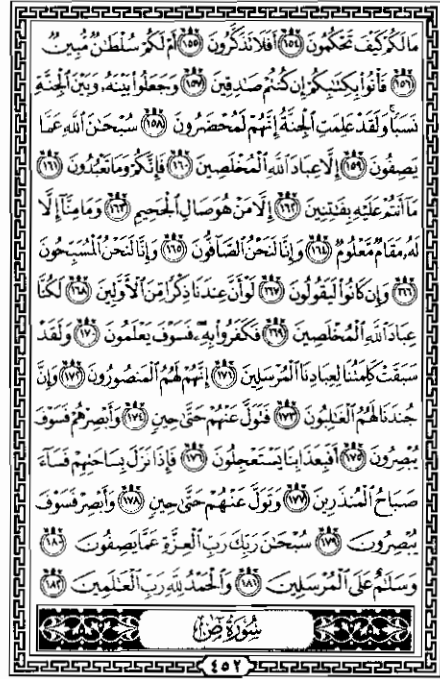 مَا لَكُمْ كَيْفَ تَحْكُمُونَ ١٥٤ أَفَلَا تَذَكَّرُونَ ١٥٥ أَمْ لَكُمْ سُلْطَٰنٌ مُّبِينٌ
١٥٦ فَأْتُوا۟ بِكِتَٰبِكُمْ إِن كُنتُمْ صَٰدِقِينَ ١٥٧ وَجَعَلُوا۟ بَيْنَهُۥ وَبَيْنَ ٱلْجِنَّةِ
نَسَبًا ۚ وَلَقَدْ عَلِمَتِ ٱلْجِنَّةُ إِنَّهُمْ لَمُحْضَرُونَ ١٥٨ سُبْحَٰنَ ٱللَّهِ عَمَّا
يَصِفُونَ ١٥٩ إِلَّا عِبَادَ ٱللَّهِ ٱلْمُخْلَصِينَ ١٦٠ فَإِنَّكُمْ وَمَا تَعْبُدُونَ ١٦١
مَآ أَنتُمْ عَلَيْهِ بِفَٰتِنِينَ ١٦٢ إِلَّا مَنْ هُوَ صَالِ ٱلْجَحِيمِ ١٦٣ وَمَا مِنَّآ إِلَّا
لَهُۥ مَقَامٌ مَّعْلُومٌ ١٦٤ وَإِنَّا لَنَحْنُ ٱلصَّآفُّونَ ١٦٥ وَإِنَّا لَنَحْنُ ٱلْمُسَبِّحُونَ
١٦٦ وَإِن كَانُوا۟ لَيَقُولُونَ ١٦٧ لَوْ أَنَّ عِندَنَا ذِكْرًا مِّنَ ٱلْأَوَّلِينَ ١٦٨ لَكُنَّا
عِبَادَ ٱللَّهِ ٱلْمُخْلَصِينَ ١٦٩ فَكَفَرُوا۟ بِهِۦ ۖ فَسَوْفَ يَعْلَمُونَ ١٧٠ وَلَقَدْ
سَبَقَتْ كَلِمَتُنَا لِعِبَادِنَا ٱلْمُرْسَلِينَ ١٧١ إِنَّهُمْ لَهُمُ ٱلْمَنصُورُونَ ١٧٢ وَإِنَّ
جُندَنَا لَهُمُ ٱلْغَٰلِبُونَ ١٧٣ فَتَوَلَّ عَنْهُمْ حَتَّىٰ حِينٍ ١٧٤ وَأَبْصِرْهُمْ فَسَوْفَ
يُبْصِرُونَ ١٧٥ أَفَبِعَذَابِنَا يَسْتَعْجِلُونَ ١٧٦ فَإِذَا نَزَلَ بِسَاحَتِهِمْ فَسَآءَ
صَبَاحُ ٱلْمُنذَرِينَ ١٧٧ وَتَوَلَّ عَنْهُمْ حَتَّىٰ حِينٍ ١٧٨ وَأَبْصِرْ فَسَوْفَ
يُبْصِرُونَ ١٧٩ سُبْحَٰنَ رَبِّكَ رَبِّ ٱلْعِزَّةِ عَمَّا يَصِفُونَ ١٨٠
وَسَلَٰمٌ عَلَى ٱلْمُرْسَلِينَ ١٨١ وَٱلْحَمْدُ لِلَّهِ رَبِّ ٱلْعَٰلَمِينَ ١٨٢
سُورَةُ صٓ
٤٥٢